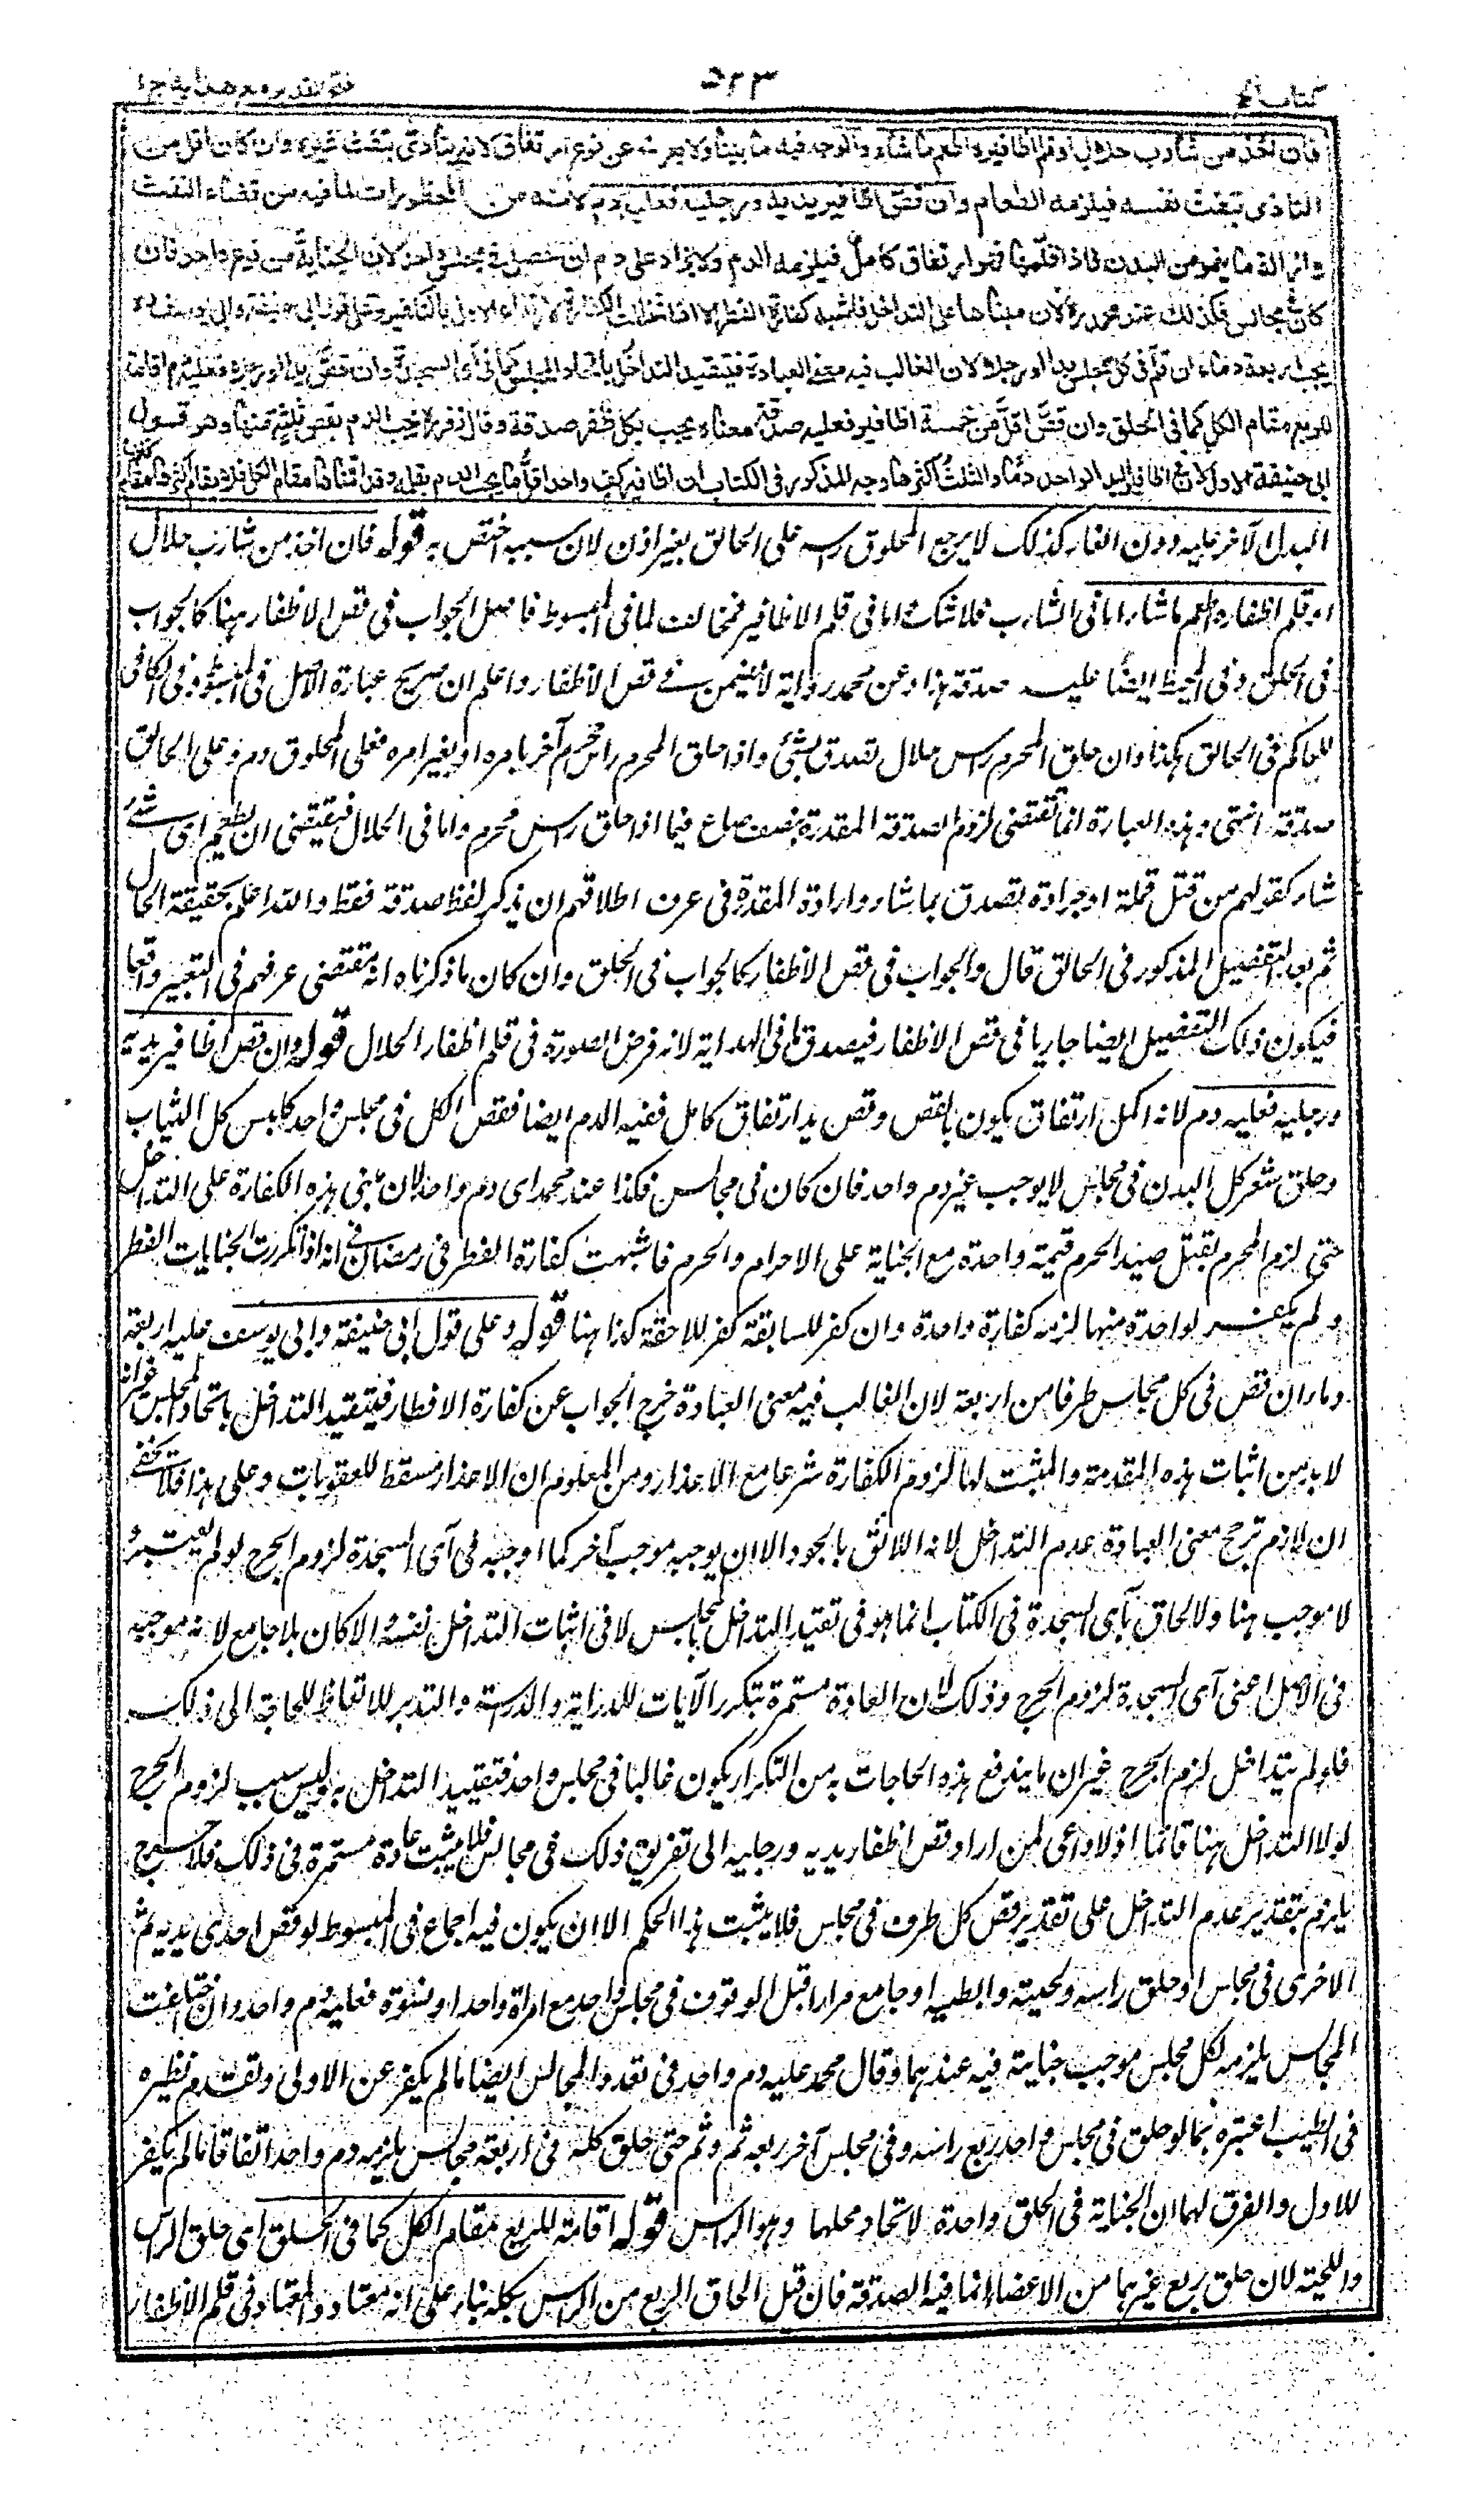 كتاب الحج ٥٢٣ فتح القدير مع هداية ج١
فان اخذ من شارب حلال او قلم اظافيره اطعم ما شاء والوجه فيه ما بينا ولا يعرى عن نوع ارتفاق لانه يتأذى بتفث غيره وان كان اقل من
التاذى بتفث نفسه فيلزمه الطعام وان قص اظافير يديه ورجليه فعليه دم لانه من المحظورات لما فيه من قضاء التفث
وازالة ما ينمو من البدن فاذا قلمها فهو ارتفاق كامل فيلزمه الدم ولا يزاد على دم ان حصل في مجلس واحد لان الجناية من نوع واحد فان
كان في مجالس فكذلك عند محمد ره لان مبناها على التداخل فاشبه كفارة الفطر الا اذا تخللت الكفارة لارتفاع الاولى بالتكفير وعلى قول ابى حنيفة وابى يوسف ره
يجب اربعة دماء ان قلم فى كل مجلس يدا او رجلا لان الغالب فيه معنى العبادة فيتقيد التداخل باتحاد المجلس كما فى آى السجدة وان قص يدا او رجلا فعليه دم اقامة
للربع مقام الكل كما فى الحلق وان قص اقل من خمسة اظافير فعليه صدقة معناه يجب بكل ظفر صدقة وقال زفر ره يجب الدم بقص ثلثة منها وهو قول
ابى حنيفة الاول لان فى اظافير اليد الواحدة دما والثلث اكثرها وجه المذكور فى الكتاب ان اظافير كف واحد اقل ما يجب الدم بقلمه وقد اقمناها مقام الكل فلا يقام اكثرها مقام كلها
البدل الآخر عليه دون الغار كذلك لا يرجع المحلوق رأسه على الحالق بغير اذن لان سببه اختص به قوله فان اخذ من شارب حلال
او قلم اظفاره اطعم ما شاء اما فى الشارب فلا شك واما فى قلم الاظافير فمخالف لما فى المبسوط فاصل الجواب فى قص الاظفار ههنا كالجواب
فى الحلق وفى المحيط ايضا عليه صدقة هذا وعن محمد رواية لا يضمن فى قص الاظفار واعلم ان صريح عبارة الاصل فى المبسوط وفى الكافى
للحاكم فى الحالق هكذا وان حلق المحرم رأس حلال تصدق بشئ واذا حلق المحرم رأس محرم آخر بامره او بغير امره فعلى المحلوق دم وعلى الحالق
صدقة انتهى وهذه العبارة انما تقتضى لزوم الصدقة المقدرة بنصف صاع فيما اذا حلق رأس محرم واما فى الحلال فيقتضى ان يطعم اى شئ
شاء كقولهم من قتل قملة او جرادة تصدق بما شاء وارادة المقدرة فى عرف اطلاقهم ان يذكر لفظ صدقة فقط والله اعلم بحقيقة الحال
ثم بعد التفصيل المذكور فى الحالق قال والجواب فى قص الاظفار كالجواب فى الحلق وان كان ما ذكرناه انه مقتضى عرفهم فى التعبير واقعا
فيكون ذلك التفصيل ايضا جاريا فى قص الاظفار فيصدق ما فى الهداية لانه فرض الصورة فى قلم اظفار الحلال قوله وان قص اظافير يديه
ورجليه فعليه دم لانه اكمل ارتفاق يكون بالقص وقص يد ارتفاق كامل ففيه الدم ايضا فقص الكل فى مجلس واحد كلبس كل الثياب
وحلق شعر كل البدن فى مجلس لا يوجب غير دم واحد فان كان فى مجالس فكذا عند محمد اى دم واحد لان مبنى هذه الكفارة على التداخل
حتى لزم المحرم بقتل صيد الحرم قيمة واحدة مع الجناية على الاحرام والحرم فاشبهت كفارة الفطر فى رمضان فى انه اذا تكررت الجنايات بالفطر
ولم يكفر لواحدة منها لزمه كفارة واحدة وان كفر للسابقة كفر للاحقة كذا ههنا قوله وعلى قول ابى حنيفة وابى يوسف عليه اربعة
دماء ان قص فى كل مجلس طرفا من اربعة لان الغالب فيه معنى العبادة خرج الجواب عن كفارة الافطار فيتقيد التداخل باتحاد المجلس غير انه
لا بد من اثبات هذه المقدمة والمثبت لها لزوم الكفارة شرعا مع الاعذار ومن المعلوم ان الاعذار مسقط للعقوبات وعلى هذا فلا يخفى
ان لازم ترجح معنى العبادة عدم التداخل لانه اللائق بالحدود الا ان يوجبه موجب آخر كما اوجبه فى آى السجدة لزوم الحرج لو لم يعتبر
لا موجب هنا ولالحاق بآى السجدة فى الكتاب انما هو فى تقييد التداخل بالمجلس لا فى اثبات التداخل نفسه والا كان بلا جامع لانه موجبه
فى الاصل اعنى آى السجدة لزوم الحرج وذلك لان العادة مستمرة بتكرر الآيات للدراية والدراسة والتدبر للاتعاظ للحاجة الى ذلك
فلو لم يتداخل لزم الحرج غير ان ما يندفع هذه الحاجات به من التكرار يكون غالبا فى مجلس واحد فتقيد التداخل به وليس سبب لزوم الحرج
لولا التداخل ههنا قائما اذ لا داعى لمن اراد قص اظفار يديه ورجليه الى تفريق ذلك فى مجالس فلا يثبت عادة مستمرة فى ذلك فلا حرج
يلزم بتقدير عدم التداخل على تقدير قص كل طرف فى مجلس فلا يثبت هذا الحكم الا ان يكون فيه اجماع فى المبسوط لو قص احدى يديه ثم
الاخرى فى مجلس او حلق رأسه ولحيته وابطيه او جامع مرارا قبل الوقوف فى مجلس واحد مع امرأة واحدة او نسوة فعليه دم واحد وان اختلفت
المجالس يلزمه لكل مجلس موجب جنايته فيه عندهما وقال محمد عليه دم واحد فى تعدد المجالس ايضا ما لم يكفر عن الاولى وتقدم نظيره
فى الطيب اعتبره بما لو حلق فى مجلس واحد ربع رأسه وفى مجلس آخر ربعه ثم وثم حتى حلق كله فى اربعة مجالس يلزمه دم واحد اتفاقا ما لم يكفر
للاول والفرق لهما ان الجناية فى الحلق واحدة لاتحاد محلها وهو الرأس قوله اقامة للربع مقام الكل كما فى الحلق اى حلق الرأس
واللحية لان حلق ربع غيرهما من الاعضاء انما فيه الصدقة فان قيل الحاق الربع من الرأس بكله بناء على انه معتاد والمعتاد فى قلم الاظفار